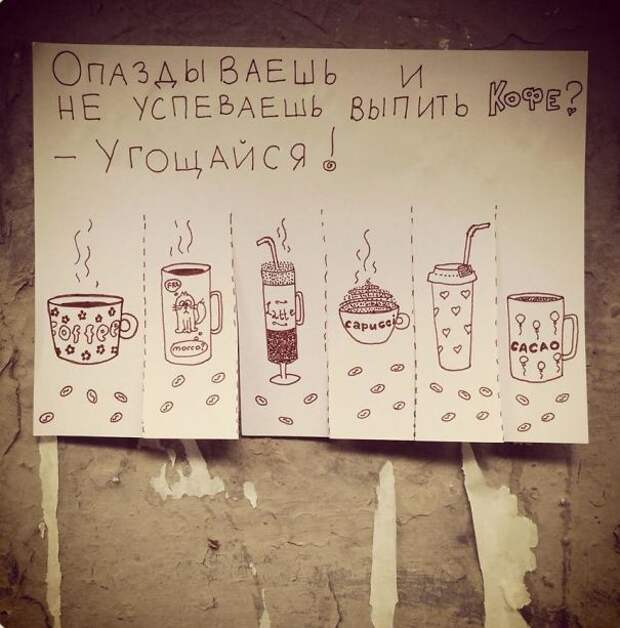 Опаздываешь и
не успеваешь выпить кофе?
– Угощайся!
coffee
Latte
capucci
CACAO